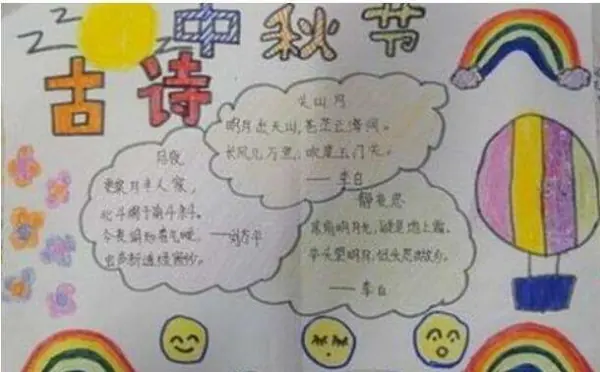 ZZZ
中秋节
古诗
关山月
明月出天山,苍茫云海间。
长风几万里,吹度玉门关。
——李白
月夜
更深月半人家,
北斗阑干南斗斜。
今夜偏知春气暖,——刘方平
虫声新透绿窗纱。
静夜思
床前明月光,疑是地上霜。
举头望明月,低头思故乡。
——李白